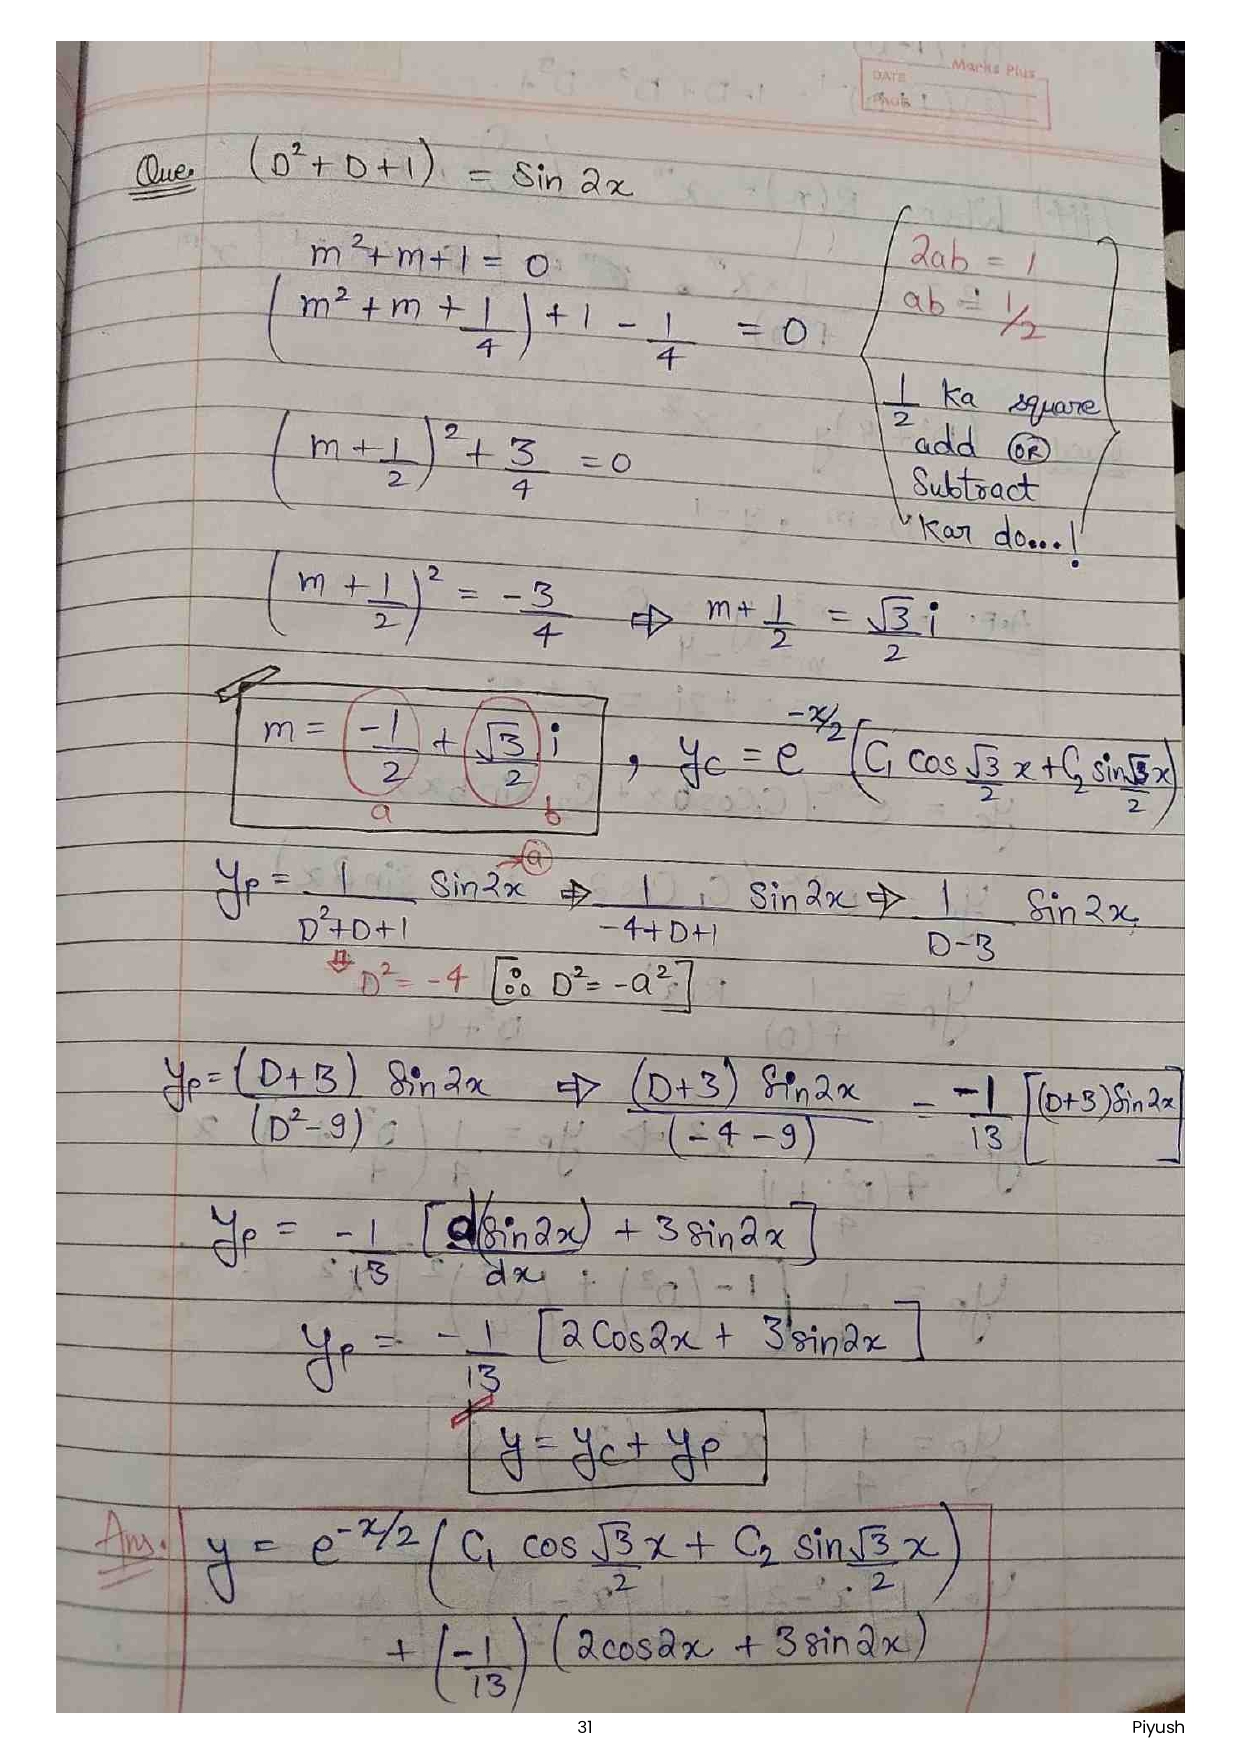 Marks Plus
DATE
Que. (D² + D + 1) = Sin 2x
m² + m + 1 = 0
(m² + m + 1/4) + 1 - 1/4 = 0
2ab = 1
ab = 1/2
1/2 ka square
add OR
Subtract
Kar do...!
(m + 1/2)² + 3/4 = 0
(m + 1/2)² = -3/4 ⇒ m + 1/2 = √3/2 i
m = -1/2 + √3/2 i , yc = e^-x/2 (C₁ cos √3/2 x + C₂ sin √3/2 x)
a b
yp = 1/(D² + D + 1) Sin 2x → a ⇒ 1/(-4 + D + 1) Sin 2x ⇒ 1/(D - 3) Sin 2x
⇓ D² = -4 [∵ D² = -a²]
yp = (D + 3) Sin 2x/(D² - 9) ⇒ (D + 3) Sin 2x/(-4 - 9) = -1/13 [(D + 3) Sin 2x]
yp = -1/13 [d(Sin 2x)/dx + 3 sin 2x]
yp = -1/13 [2 Cos 2x + 3 sin 2x]
y = yc + yp
Ans. y = e^-x/2 (C₁ cos √3/2 x + C₂ sin √3/2 x)
+ (-1/13) (2 cos 2x + 3 sin 2x)
31
Piyush